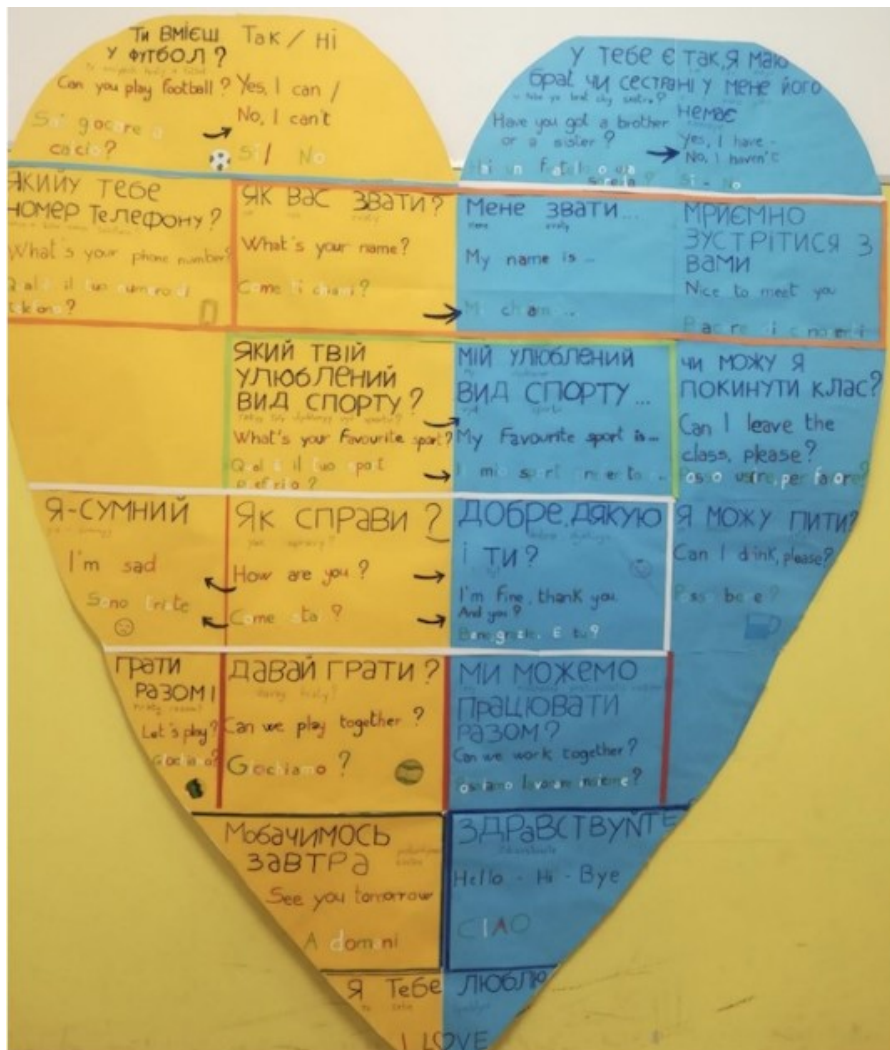 Ти вмієш
у футбол?
Can you play football?
calcio?
Так / Ні
Yes, I can /
No, I can't
Sì / No
У тебе є
брат чи сестра
Have you got a brother
or a sister?
Hai un fratello o una
sorella?
так, я маю
ні у мене його
немає
Yes, I have -
No, I haven't
Sì - No
ЯКИЙ У ТЕБЕ
НОМЕР ТЕЛЕФОНУ?
What's your phone number?
Qual è il tuo numero di
telefono?
ЯК ВАС ЗВАТИ?
What's your name?
Come ti chiami?
Мене звати...
My name is ..
Mi chiamo ...
МРИЄМНО
ЗУСТРІТИСЯ З
ВАМИ
Nice to meet you
ЯКИЙ ТВІЙ
УЛЮБЛЕНИЙ
ВИД СПОРТУ?
What's your favourite sport?
Qual è il tuo sport
preferito?
МІЙ УЛЮБЛЕНИЙ
ВИД СПОРТУ ...
My Favourite sport is...
чи можу я
покинути клас?
Can I leave the
class, please?
Posso uscire, per favore?
Я-СУМНИЙ
I'm sad
Sono triste
ЯК СПРАВИ?
How are you?
Come sta?
ДОБРЕ, ДЯКУЮ
І ТИ?
I'm fine, thank you
And you?
Bene, grazie. E tu?
Я МОЖУ ПИТИ?
Can I drink, please?
Posso bere?
ГРАТИ
РАЗОМ!
Let's play?
Giochiamo?
ДАВАЙ ГРАТИ?
Can we play together?
Giochiamo?
МИ МОЖЕМО
ПРАЦЮВАТИ
РАЗОМ?
Can we work together?
Possiamo lavorare insieme?
Мобачимось
завтра
See you tomorrow
A domani
ЗДРАВСТВУЙТЕ
Hello - Hi - Bye
CIAO
Я Тебе люблю
I LOVE